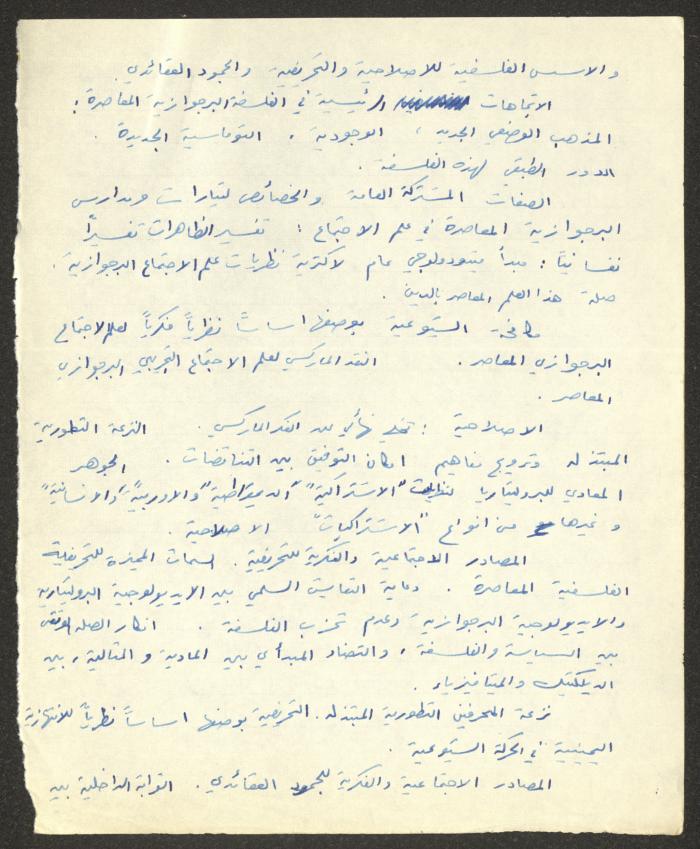 والاسس الفلسفية للاصلاحية والتحريفية والجمود العقائدي.
الاتجاهات الرئيسية في الفلسفة البرجوازية المعاصرة:
المذهب الوضعي الجديد، الوجودية، التوماسية الجديدة.
الدور الطبقي لهذه الفلسفة.
الصفات المشتركة العامة والخصائص لتيارات ومدارس
البرجوازية المعاصرة في علم الاجتماع: تفسير الظاهرات تفسيراً
نفسانياً: مبدأ ميتودولوجي عام لاكثرية نظريات علم الاجتماع البرجوازية.
صلة هذا العلم المعاصر بالدين.
مكافحة الشيوعية بوصفها اساساً نظرياً فكرياً لعلم الاجتماع
البرجوازي المعاصر. النقد الماركسي لعلم الاجتماع التجريبي البرجوازي
المعاصر.
الاصلاحية: تخلي نهائي عن الفكر الماركسي. النزعة التطورية
المبتذلة وترويج مفاهيم امكان التوفيق بين التناقضات. الجوهر
المعادي للبروليتاريا لنظريات "الاشتراكية" "الديمقراطية" والاوربية" "والانسانية"
وغيرها من انواع "الاشتراكيات" الاصلاحية.
المصادر الاجتماعية والفكرية للتحريفية. السمات المميزة للتحريفية
الفلسفية المعاصرة. دعاية التعايش السلمي بين الايديولوجية البروليتارية
والايديولوجية البرجوازية وعدم تحزب الفلسفة. انكار الصلة الوثقى
بين السياسة والفلسفة، والتضاد المبدأي بين المادية والمثالية، بين
الديلكتيك والميتافيزياء.
نزعة المحرفين التطورية المبتذلة. التحريفية بوصفها اساساً نظرياً للانتهازية
اليمينية في الحركة الشيوعية.
المصادر الاجتماعية والفكرية للجمود العقائدي. القرابة الداخلية بين